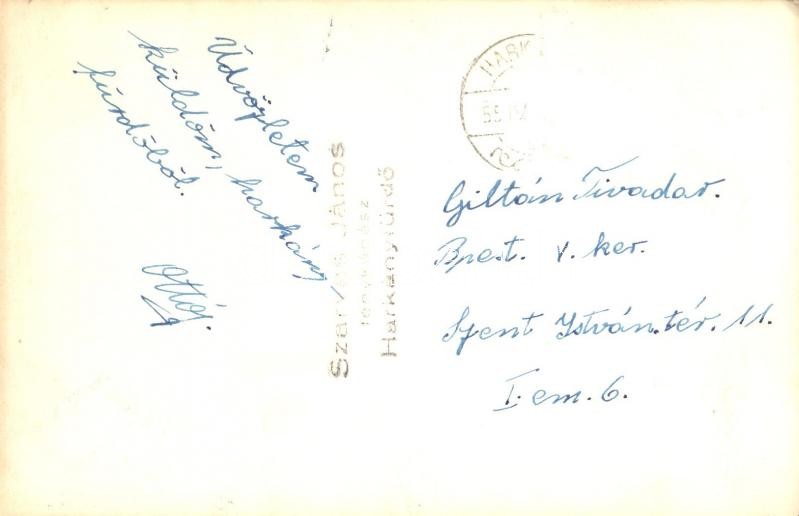 Üdvözletem
küldöm, harkány,
fürdőből.
Ottó.
Szarvas János
fényképész
Harkányfürdő
HARK
55
Giltán Tivadar.
Bpest. V. ker.
Szent István. tér. 11.
I. em. 6.